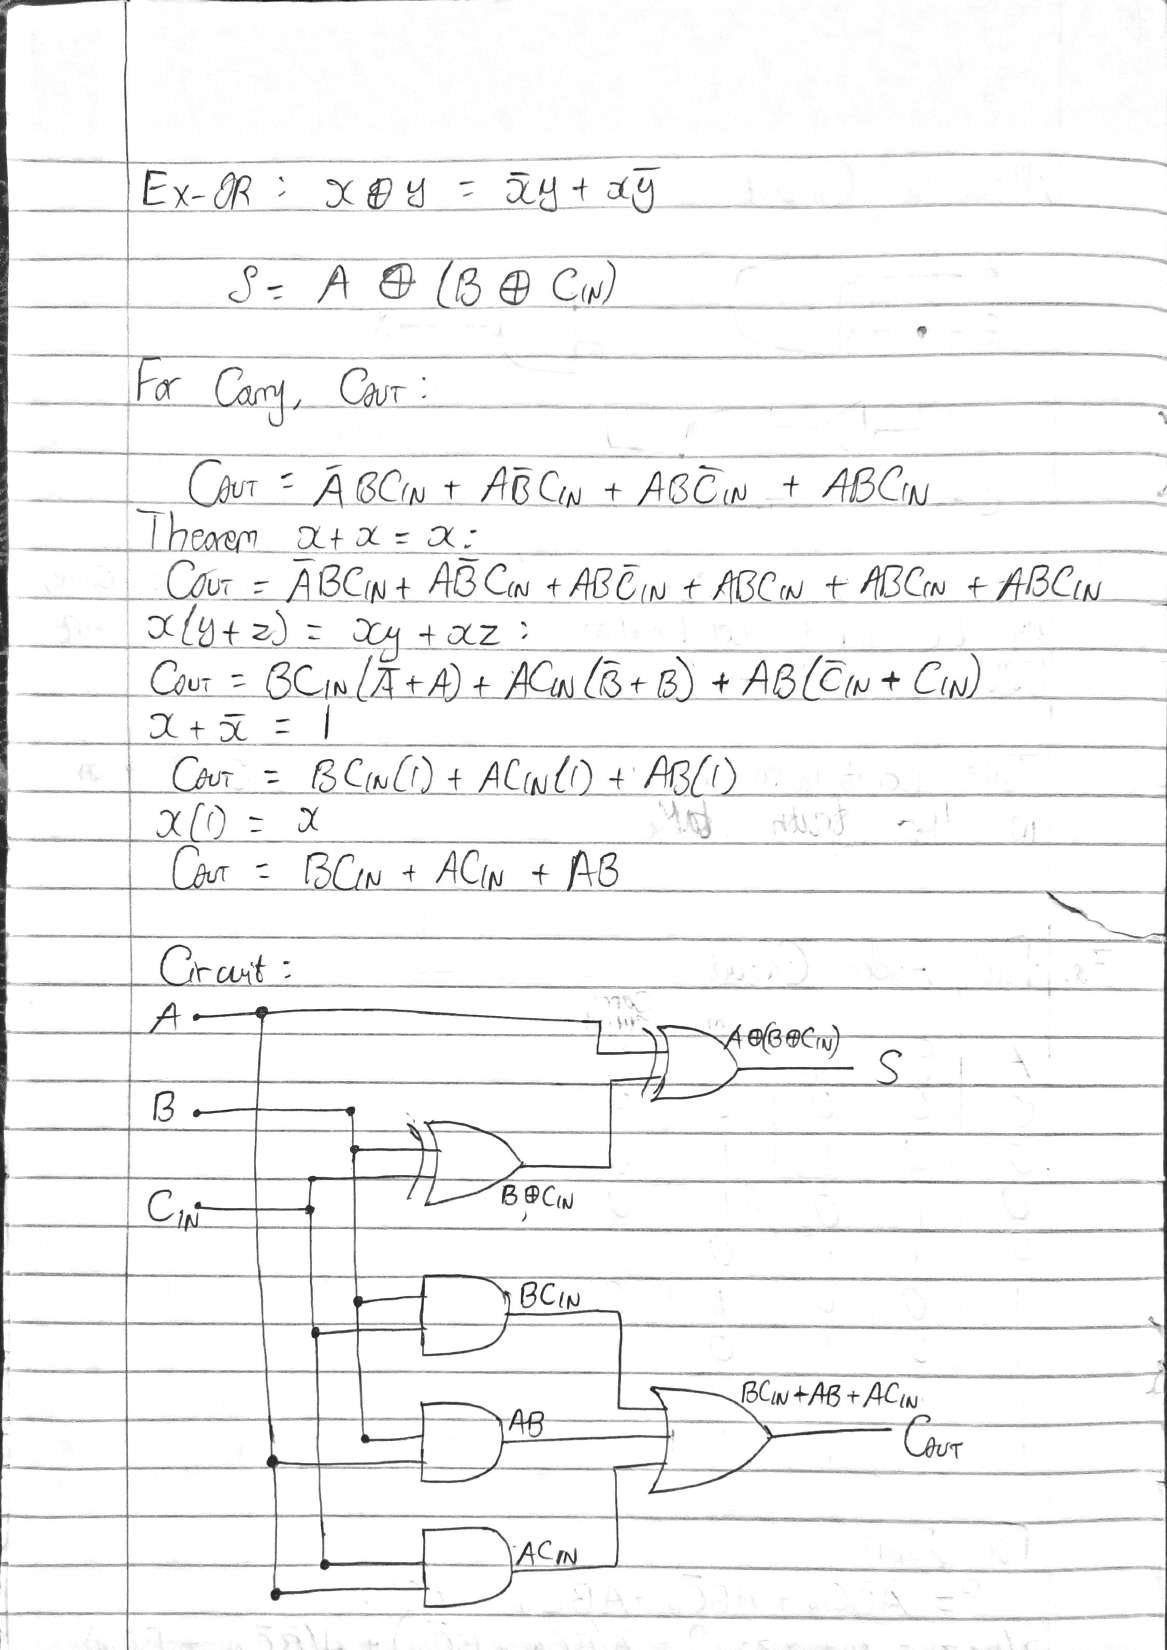 Ex-OR : x ⊕ y = x̄y + xȳ
S = A ⊕ (B ⊕ CIN)
For Carry, COUT :
COUT = ĀBCIN + AB̄CIN + ABC̄IN + ABCIN
Theorem x + x = x :
COUT = ĀBCIN + AB̄CIN + ABC̄IN + ABCIN + ABCIN + ABCIN
x(y + z) = xy + xz :
COUT = BCIN(Ā + A) + ACIN(B̄ + B) + AB(C̄IN + CIN)
x + x̄ = 1
COUT = BCIN(1) + ACIN(1) + AB(1)
x(1) = x
COUT = BCIN + ACIN + AB
Circuit :
A
A⊕(B⊕CIN)
S
B
B⊕CIN
CIN
BCIN
BCIN + AB + ACIN
AB
COUT
ACIN